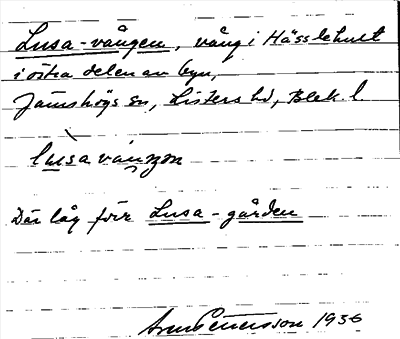 Lusa-vången, vång i Hässlehult
i östra delen av byn,
Jämshögs sn, Listers hd, Blek. l.
lusa vånŋon
Där låg förr Lusa-gården
Pettersson 1936